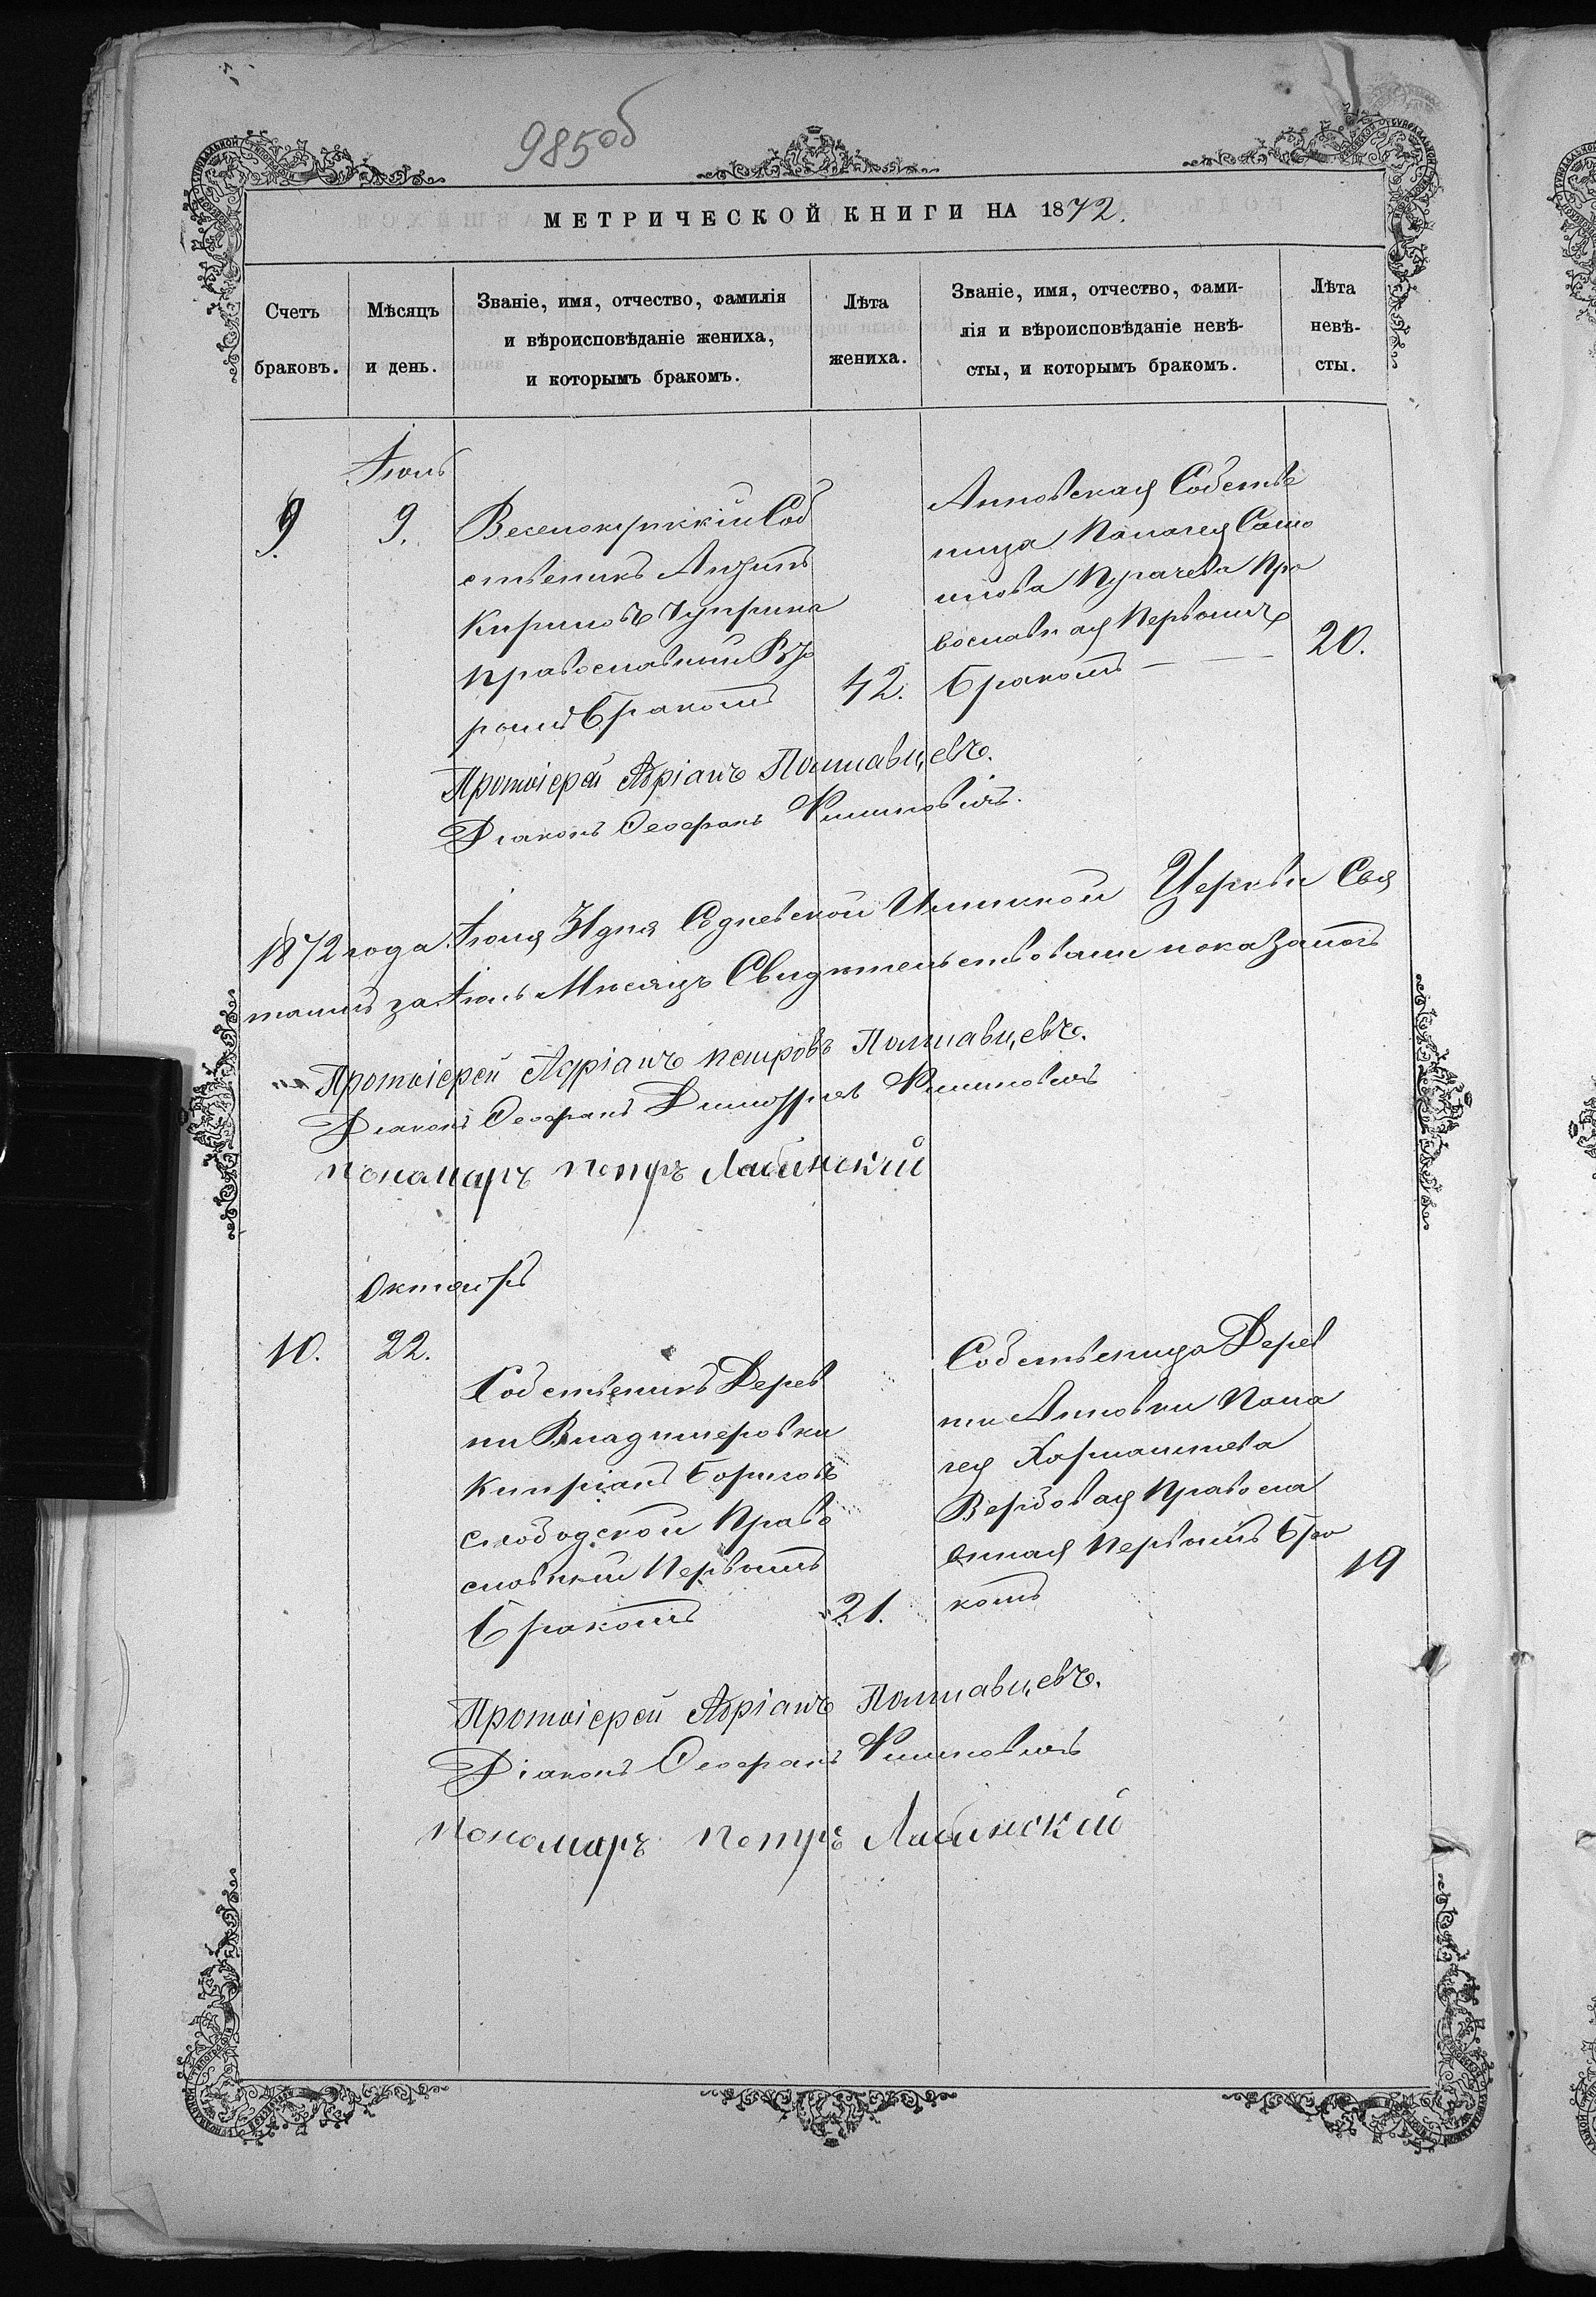 985об
МЕТРИЧЕСКОЙ КНИГИ НА 1872.
Счетъ
браковъ.
Мѣсяцъ
и день.
Званіе, имя, отчество, фамилія
и вѣроисповѣданіе жениха,
и которымъ бракомъ.
Лѣта
жениха.
Званіе, имя, отчество, фами-
лія и вѣроисповѣданіе невѣ-
сты, и которымъ бракомъ.
Лѣта
невѣ-
сты.
Іюль
9 9.
Соб
ственикъ
Кириловъ Чуприна
православний Вто
римъ Бракомъ
42.
Анновская Собстве
ница Палагея Само
илова Пугачева Пра
вославная Первимъ
Бракомъ
20.
Протоіерей Адріанъ Полтавцевъ.
Діаконъ Феофанъ
1872 года Іюля 31 дня Церкви Свя
тания за Іюль Месяцъ Свидетельствовали показаной
Протоіерей Адріанъ Петровъ Полтавцевъ.
Діаконъ Феофанъ
Пономарь Петръ Лабинскій
Октябрь
10. 22.
Собственикъ Дерев
ни Владимеровки
Кипріанъ Борисовъ
Слободской Право
славний Первимъ
Бракомъ
21.
Собственица Дерев
ни Анновки Пала
гея
Вербовая Правосла
вная Первимъ Бра
комъ
19
Протоіерей Адріанъ Полтавцевъ.
Діаконъ Феофанъ
Пономарь Петръ Лабинскій